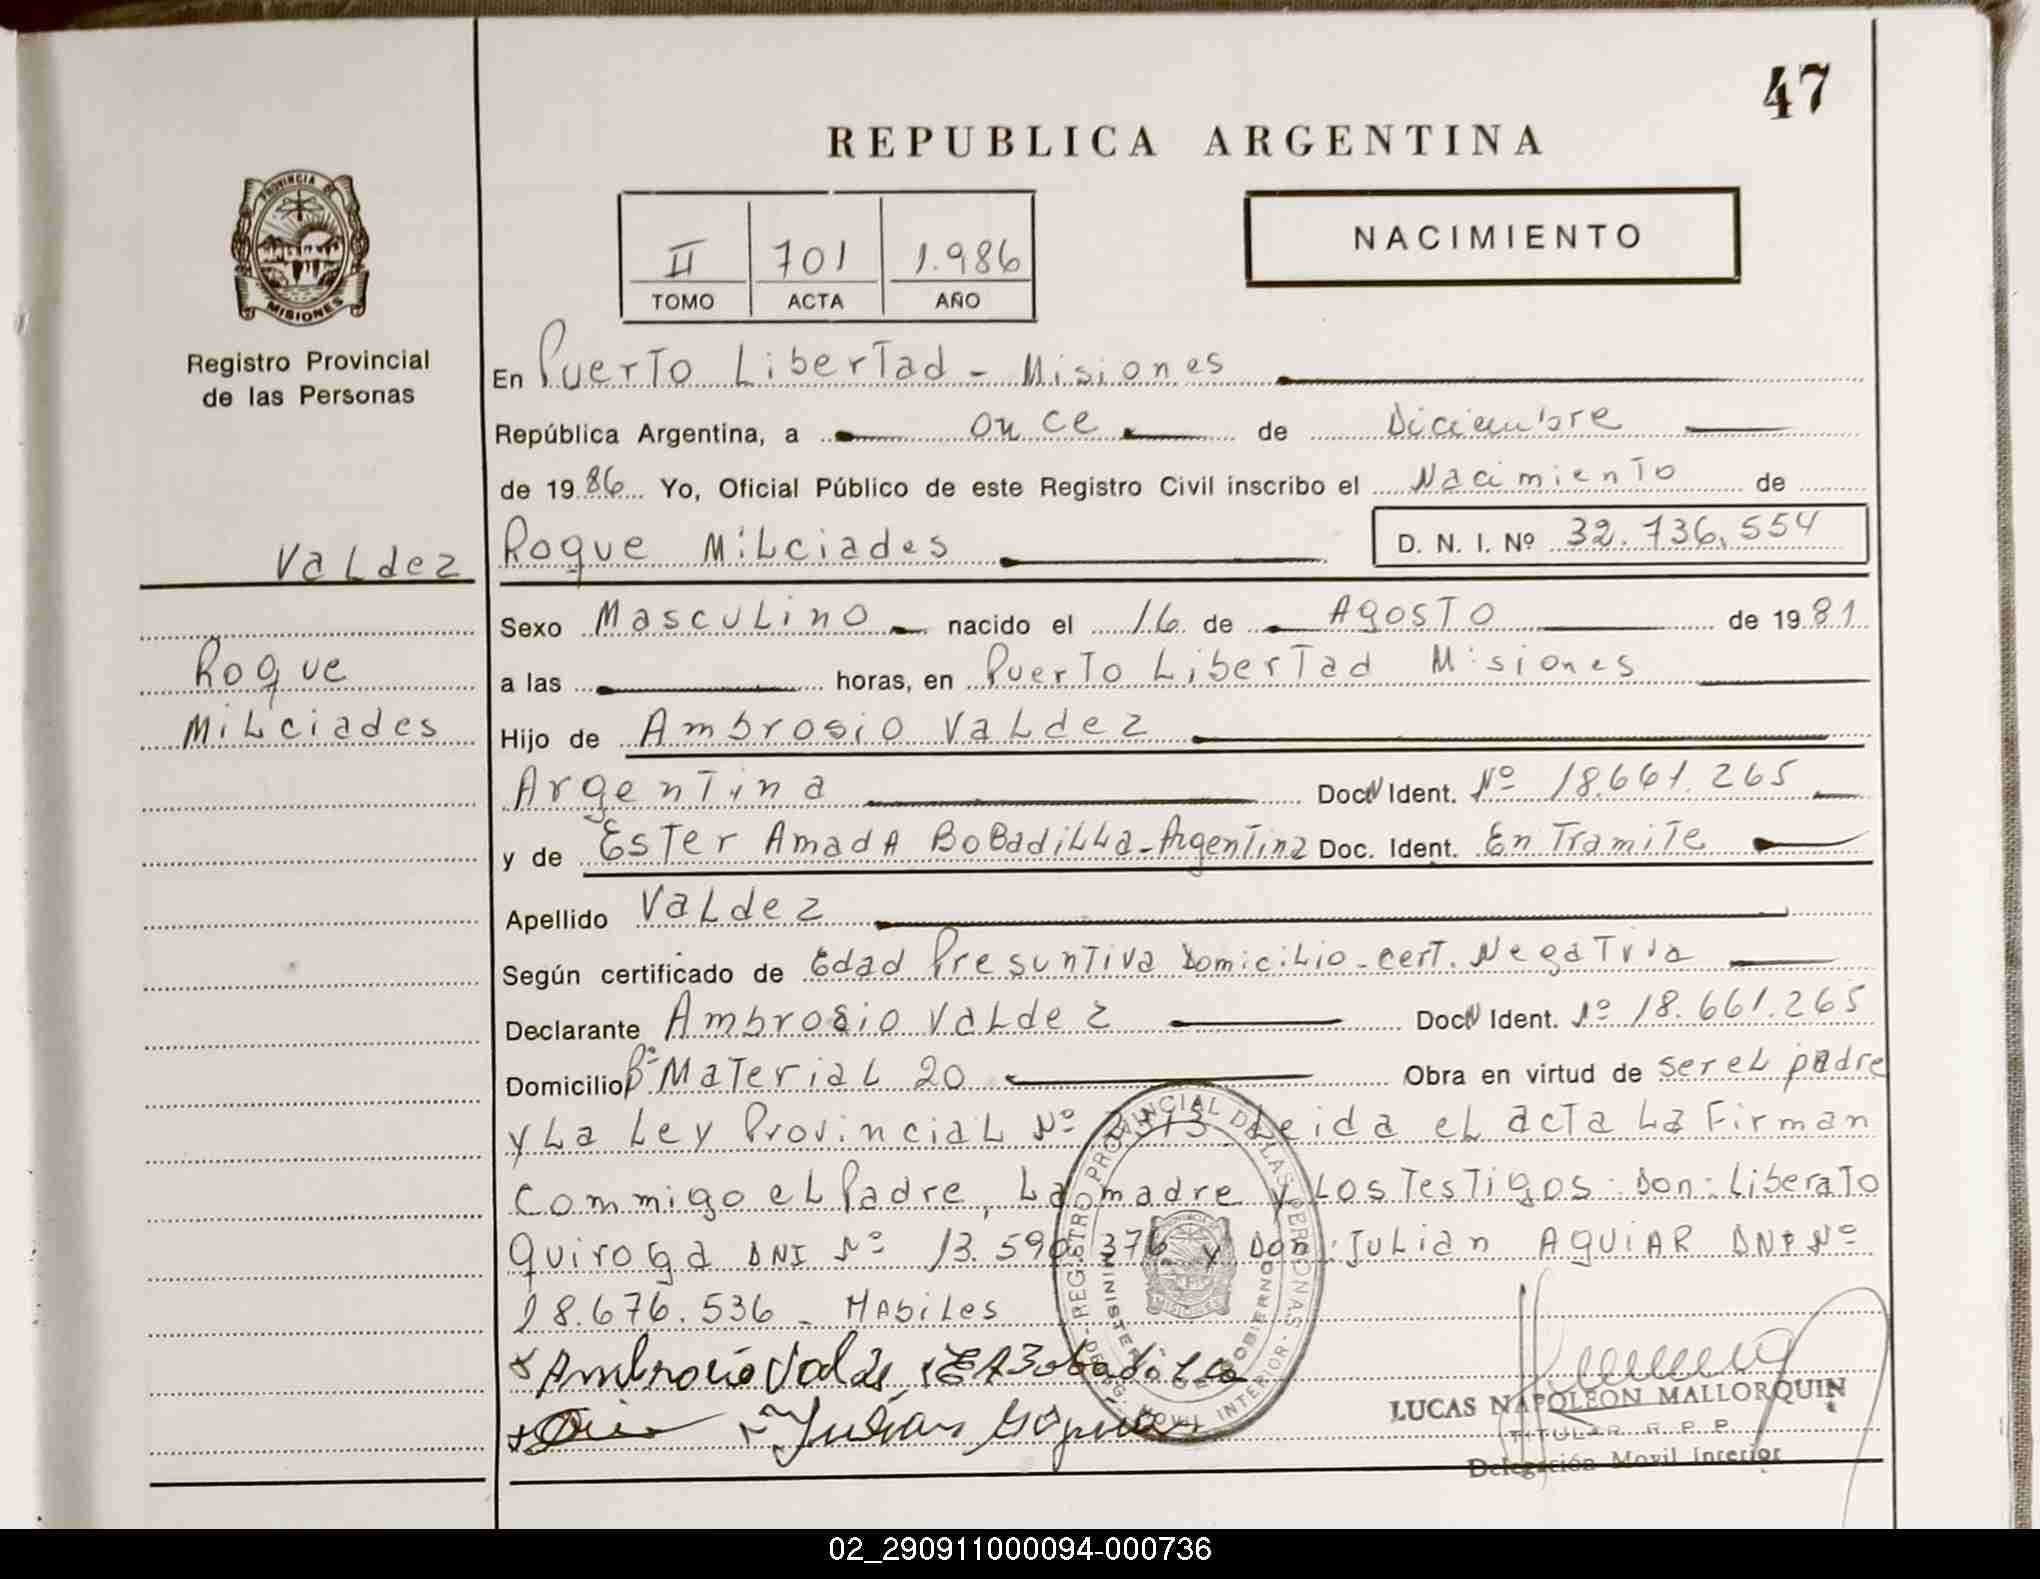 47
REPUBLICA ARGENTINA
PROVINCIA DE
MISIONES
Registro Provincial
de las Personas
II 701 1.986
TOMO ACTA AÑO
NACIMIENTO
En Puerto Libertad - Misiones
República Argentina, a once de Diciembre
de 1986 Yo, Oficial Público de este Registro Civil inscribo el Nacimiento de
Valdez
Roque Milciades D. N. I. Nº 32.736.554
Roque
Milciades
Sexo Masculino nacido el 16 de Agosto de 1981
a las horas, en Puerto Libertad Misiones
Hijo de Ambrosio Valdez
Argentina Doc. Ident. Nº 18.661.265
y de Ester Amada Bobadilla - Argentina Doc. Ident. En Tramite
Apellido Valdez
Según certificado de Edad Presuntiva Domicilio - cert. Negativa
Declarante Ambrosio Valdez Doc. Ident. Nº 18.661.265
Domicilio Bº Material 20 Obra en virtud de ser el padre
y La Ley Provincial Nº Leida el acta La Firman
Commigo el Padre, La madre y Los Testigos: Don: Liberato
Quiroga DNI Nº 13.590.376 y Don: Julian Aguiar DNI Nº
18.676.536 - Habiles
Ambrosio Valdes EABobadilla
Julian
REGISTRO PROVINCIAL DE LAS PERSONAS
MINISTERIO DE GOBIERNO
DELEG. MOVIL INTERIOR
LUCAS NAPOLEON MALLORQUIN
TITULAR R. P. P.
Delegación Movil Interior
02_290911000094-000736